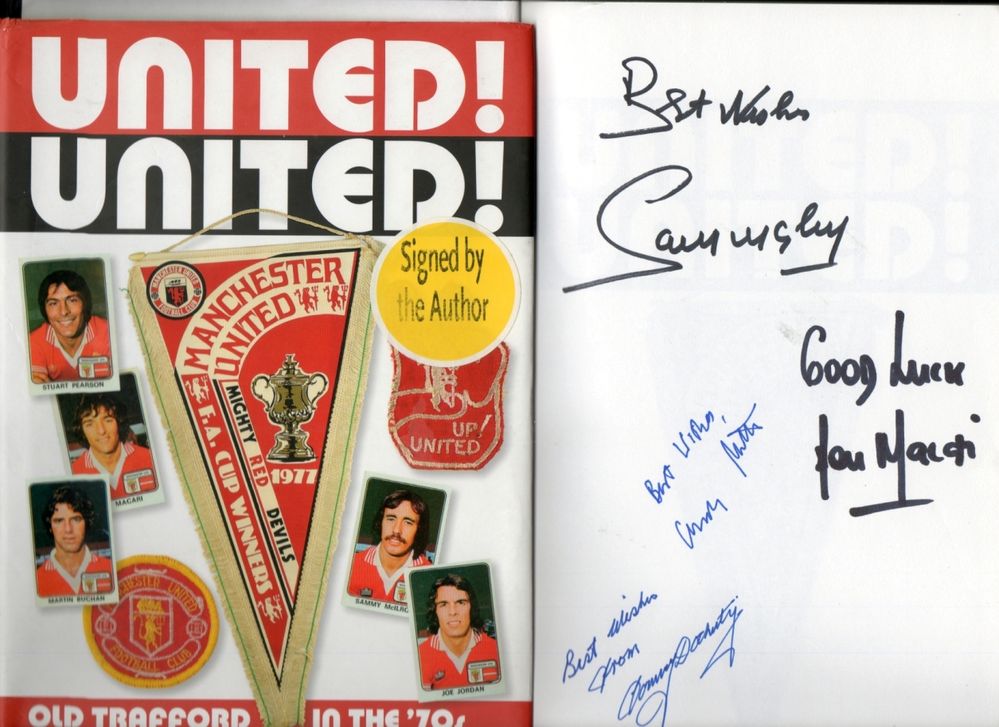 UNITED!
UNITED!
Signed by
the Author
MANCHESTER
UNITED
F.A. CUP WINNERS
MIGHTY RED DEVILS
1977
UP!
UNITED
STUART PEARSON
MACARI
MARTIN BUCHAN
SAMMY McILRO
JOE JORDAN
CHESTER UNITED
FOOTBALL CLUB
OLD TRAFFORD IN THE '70s
Best Wishes
Good Luck
Lou Macari
Best Wishes,
Best wishes
from
Tommy Docherty